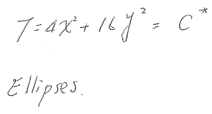 T = 4x² + 16y² = C*
Ellipses.